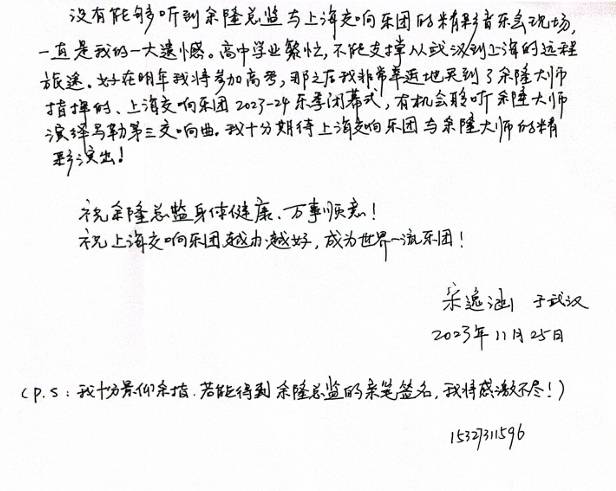 没有能够听到余隆总监与上海交响乐团的精彩音乐会现场，
一直是我的一大遗憾。高中学业繁忙，不能支撑从武汉到上海的远程
旅途。好在明年我将参加高考，那之后我非常幸运地见到了余隆大师
指挥的、上海交响乐团2023-24乐季闭幕式，有机会聆听余隆大师
演绎马勒第三交响曲。我十分期待上海交响乐团与余隆大师的精
彩演出！
祝余隆总监身体健康、万事顺意！
祝上海交响乐团越办越好，成为世界一流乐团！
宋逸涵 于武汉
2023年11月25日
（P.S：我十分景仰余指，若能得到余隆总监的亲笔签名，我将感激不尽！）
15327311596